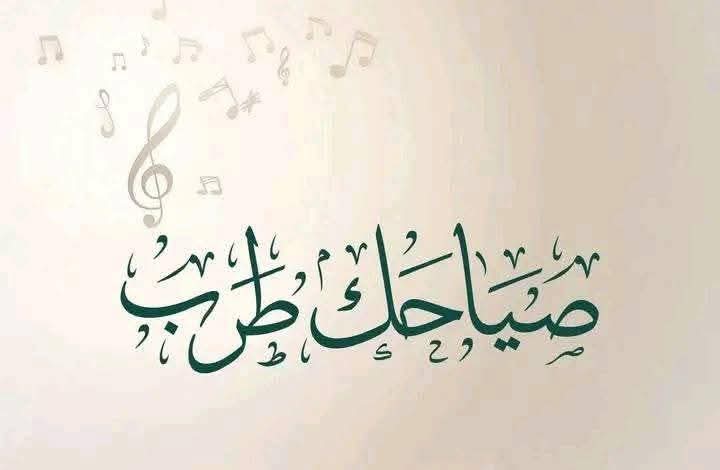 صياحك طرب